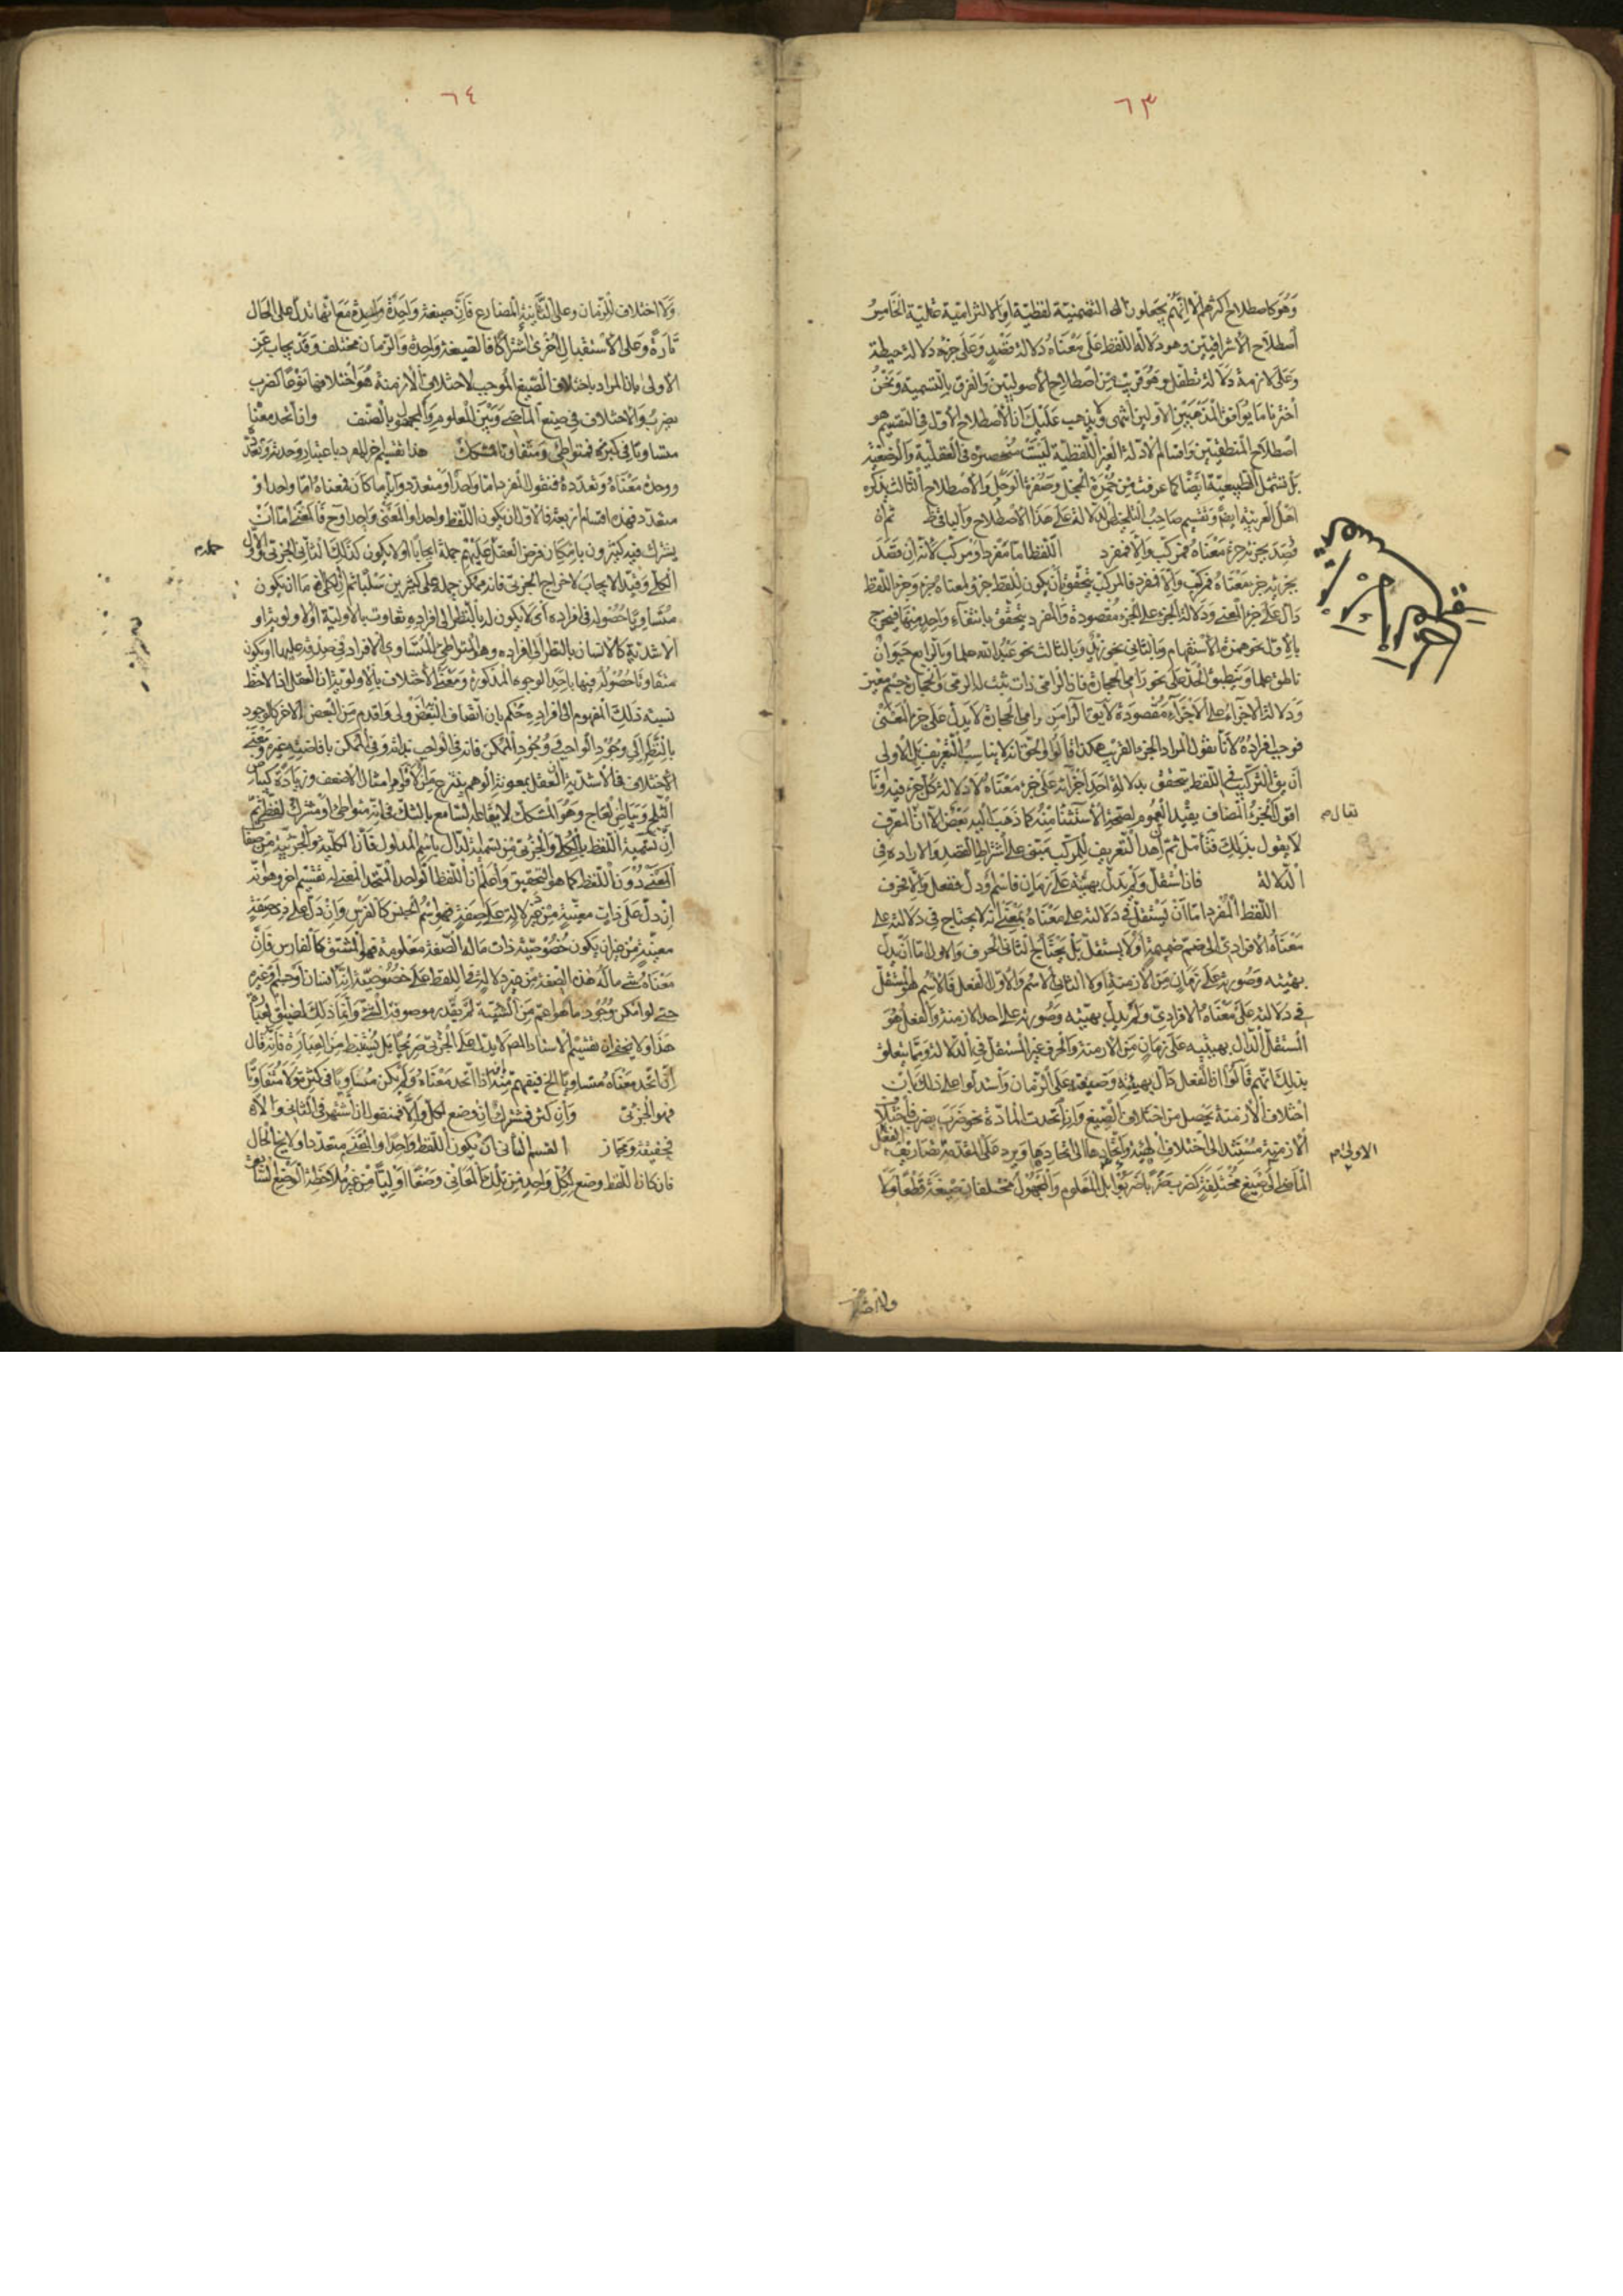 ٦٣
وَهُوَ كاصطلاح اكثرهم الا انّهم يجعلون التضمنيّة لفظيّة اولا والالتزاميّة عقليّة الخامس
اصطلاح الاشراقيين وهو دلالة اللفظ على مَعْناهُ دلالة قصدٍ وعلى جزئه دلالة حيطة
وعلى لازمه دلالة تطفل وهو قريب من اصطلاح الاصوليين والفرق بالتسمية ونحن
اخترنا ما يوافق المذهبين الاولين انتهى ولا يذهب عليك ان الاصطلاح الاول في التقسيم هو
اصطلاح المنطقيين واقسام الدلالة الغير اللفظية ليست منحصرة في العقلية والوضعية
بل تشتمل الطبيعيّة ايضًا كما عرفت من حمرة الخجل وصفرة الوجل والاصطلاح الثالث يذكره
اهل العربية ايضا وتقسيم صاحب التلخيص الدلالة على هذا الاصطلاح والباقي ظ ثم ان
قُصِدَ بجزئه جزء معناه فمركب والا فمفرد اللفظ اما مفرد او مركب لانه ان قصد
بجزئه جزء معناه فمركب والا فمفرد فالمركب يتحقق ان يكون للفظ جزء ولمعناه جزء وجزء اللفظ
دال على جزء المعنى ودلالة الجزء على الجزء مقصودة والمفرد يتحقق بانتفاء واحد منها فيخرج
بالاول نحو همزة الاستفهام وبالثاني نحو زيد وبالثالث نحو عبد الله علما وبالرابع حيوان
ناطق علما وينطبق الحد على نحو رامي الحجارة فان الرامي ذات ثبت له الرمي والحجارة جسم معين
ودلالة الاجزاء على الاجزاء مقصودة لا يقال الراء من رامي الحجارة لا يدل على جزء المعنى
فوجب افراده لانا نقول المراد الجزء القريب هكذا قالوا والحق انه لا يناسب التعريف بل الاولى
ان يق التركيب في اللفظ يتحقق بدلالة احد اجزائه على جزء معناه لا دلالة كل جزء فيه وانا
اقول الجزء المضاف يفيد العموم لصحة الاستثناء منه كما ذهب اليه بعض الا ان المعرف
لا يقول بذلك فتأمل ثم ان هذا التعريف للمركب مبني على اشتراط القصد والارادة في
الدلالة فان استقل ولم يدل بهيئته على زمان فاسم ودل ففعل والا فحرف
اللفظ المفرد اما ان يستقل في دلالته على معناه بمعنى انه لا يحتاج في دلالته على
معناه الافرادي الى ضم ضميمة او لا يستقل بل يحتاج الثاني الحرف والاول اما ان يدل
بهيئته وصورته على زمان من الازمنة او لا الثاني الاسم والاول الفعل فالاسم هو المستقل
في دلالته على معناه الافرادي ولم يدل بهيئته وصورته على احد الازمنة والفعل هو
المستقل الدال بهيئته على زمان من الازمنة والحرف غير المستقل في الدلالة ومما يتعلق
بذلك انهم قالوا ان الفعل دال بهيئته وصيغته على الزمان واستدلوا على ذلك بان
اختلاف الازمنة يحصل من اختلاف الصيغ وان اتحدت المادة نحو ضرب يضرب فاختلاف
الازمنة مستند الى اختلاف الهيئة واتحادها الى اتحادها ويرد على المقدمة تصاريف الفعل
الماضي الى صيغ مختلفة كضرب ضربا ضربوا بل المعلوم والمجهول مختلفان صيغة قطعا ولا
يقال م
الاولى م
٦٤
ولا اختلاف للزمان وعلى الثانية المضارع فان صيغته واحدة مع انها تدل على الحال
تارة وعلى الاستقبال اخرى اشتراكا فالصيغة واحدة والزمان مختلف وقد يجاب عن
الاولى بان المراد باختلاف الصيغ الموجب لاختلاف الازمنة هو اختلافها نوعا كضرب
يضرب والاختلاف في صيغ الماضي وبين المعلوم والمجهول بالصنف وان اتحد معنا
متساويا في كثيرة فمتواطئ ومتفاوتا فمشكك هذا تقسيم اخر للمفرد باعتبار وحدته وتعدده
ووحدة معناه وتعدده فنقول المفرد اما واحد او متعدد وايا ما كان فمعناه اما واحد او
متعدد فهذه اقسام اربعة فالاول ان يكون اللفظ واحدا والمعنى واحدا وح فالمعنى اما ان
يشترك فيه كثيرون بامكان فرض العقل عليهم حملة ايجابا او لا يكون كذلك الثاني الجزئي والاول
الكلي وقيد الايجاب لاخراج الجزئي فانه ممكن حمله على كثيرين سلبا ثم الكلي اما ان يكون
متساويا حصوله في افراده اى لا يكون له بالنظر الى افراده تفاوت بالاولية او الاولوية او
الاشدية كالانسان بالنظر الى افراده وهو المتواطي المتساوي الافراد في صدقه عليها او يكون
متفاوتا حصوله فيها باحد الوجوه المذكورة ومعنى الاختلاف بالاولوية ان العقل اذا لاحظ
نسبة ذلك المفهوم الى افراده حكم بان اتصاف البعض اولى واقدم من البعض الاخر كالوجود
بالنظر الى وجود الواجب ووجود الممكن فانه في الواجب بذاته وفي الممكن بافاضة غيره ومعنى
الاختلاف في الاشدية ان العقل بمعونة الوهم ينتزع من الاقوى امثال الاضعف وزيادة كبياض
الثلج وبياض العاج وهو المشكك لايقاعه السامع بالشك في انه متواطئ او مشترك لفظي ثم
ان تسمية اللفظ بالكلي والجزئي من تسمية الدال باسم المدلول فان الكلية والجزئية من صفات
المعنى دون اللفظ كما هو التحقيق واعلم ان اللفظ الواحد المتحد المعنى له تقسيم اخر وهو انه
ان دل على ذات معينة من غير دلالة على صفة فهو اسم الجنس كالفرس وان دل على ذي صفة
معينة من غير ان يكون خصوصية ذات ما له الصفة معلومة فهو المشتق كالفارس فان
معناه شيء ما له هذه الصفة من غير دلالة اللفظ على خصوصية انه انسان او جسم وغيره
حتى لو امكن وجود ما هو اعم من الشيئية لم نقدر موصوفه الشيء وانما ذلك لضيق العبارة
هذا ولا يخفى ان تقسيم الاستاد المصـ لا يدل على الجزئي صريحا بل يستنبط من العبارة فانه قال
ان اتحد معناه متساويا الخ فيفهم منه انه اذا اتحد معناه ولم يكن متساويا في كثيرة ولا متفاوتا
فهو الجزئي وان كثر فمشترك ان وضع لكل والا فمنقول ان اشتهر في الثاني والا
فحقيقة ومجاز القسم الثاني ان يكون اللفظ واحدا والمعنى متعددا ولا يخ الحال
فان كان اللفظ وضع لكل واحد من تلك المعاني وضعا اوليا من غير ملاحظة الوضع السابق
حمله م